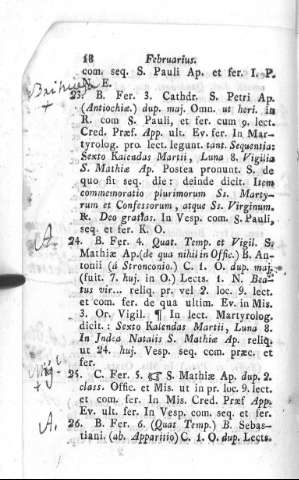 18 Februarius.
com. seq. S. Pauli Ap. et fer. I. P.
N. E.
23. B. Fer. 3. Cathdr. S. Petri Ap.
(Antiochiæ) dup. maj. Omn. ut heri. in
R. com S. Pauli, et fer. cum 9. lect.
Cred. Præf. App. ult. Ev. fer. In Mar-
tyrolog. pro lect. legunt. tant. Sequentia:
Sexto Kalendas Martii, Luna 8. Vigilia
S. Mathiæ Ap. Postea pronunt. S. de
quo fit seq. die: deinde dicit. Item
commemoratio plurimorum Ss. Marty-
rum et Confessorum, atque Ss. Virginum.
℟. Deo gratias. In Vesp. com. S. Pauli,
seq. et fer. K. O.
A.
24. B. Fer. 4. Quat. Temp. et Vigil. S.
Mathiæ Ap. (de qua nihil in Offic.) B. An-
tonii (á Stronconio.) C. 1. O. dup. maj.
(fuit. 7. huj. in O.) Lects. 1. N. Bea-
tus vir... reliq. pr. vel 2. loc. 9. lect.
et com. fer. de qua ultim. Ev. in Mis.
3. Or. Vigil. ¶ In lect. Martyrolog.
dicit.: Sexto Kalendas Martii, Luna 8.
In Judea Natalis S. Mathiæ Ap. reliq.
ut 24. huj. Vesp. seq. com. præc. et
fer.
25. C. Fer. 5. ☞ S. Mathiæ Ap. dup. 2.
class. Offic. et Mis. ut in pr. loc. 9. lect.
et com. fer. In Mis. Cred. Præf App.
Ev. ult. fer. In Vesp. com. seq. et fer.
A.
26. B. Fer. 6. (Quat Temp.) B. Sebas-
tiani. (ab. Apparitio) C. 1. O. dup. Lects.